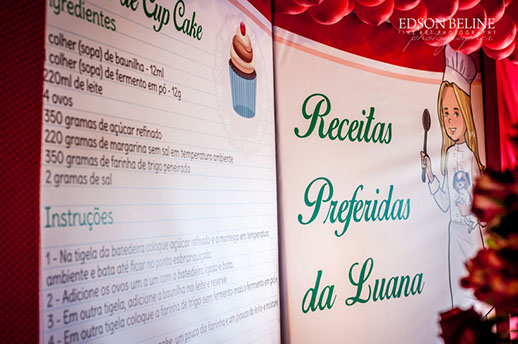 de Cup Cake
Ingredientes
colher (sopa) de baunilha - 12ml
colher (sopa) de fermento em pó - 12g
220ml de leite
4 ovos
350 gramas de açúcar refinado
220 gramas de margarina sem sal em temperatura ambiente
350 gramas de farinha de trigo peneirada
2 gramas de sal
Instruções
1 - Na tigela da batedeira coloque açúcar refinado e a margarina em temperatura
ambiente e bata até ficar no ponto esbranquiçado
2 - Adicione os ovos um a um com a batedeira ligada e bata
3 - Em outra tigela, adicione a baunilha no leite e reserve
4 - Em outra tigela coloque a farinha de trigo sem fermento mas o fermento em pó e
um pouco da farinha e um pouco do leite e misture
Receitas
Preferidas
da Luana
EDSON BELINE
FINE ART PHOTOGRAPHY
photographer